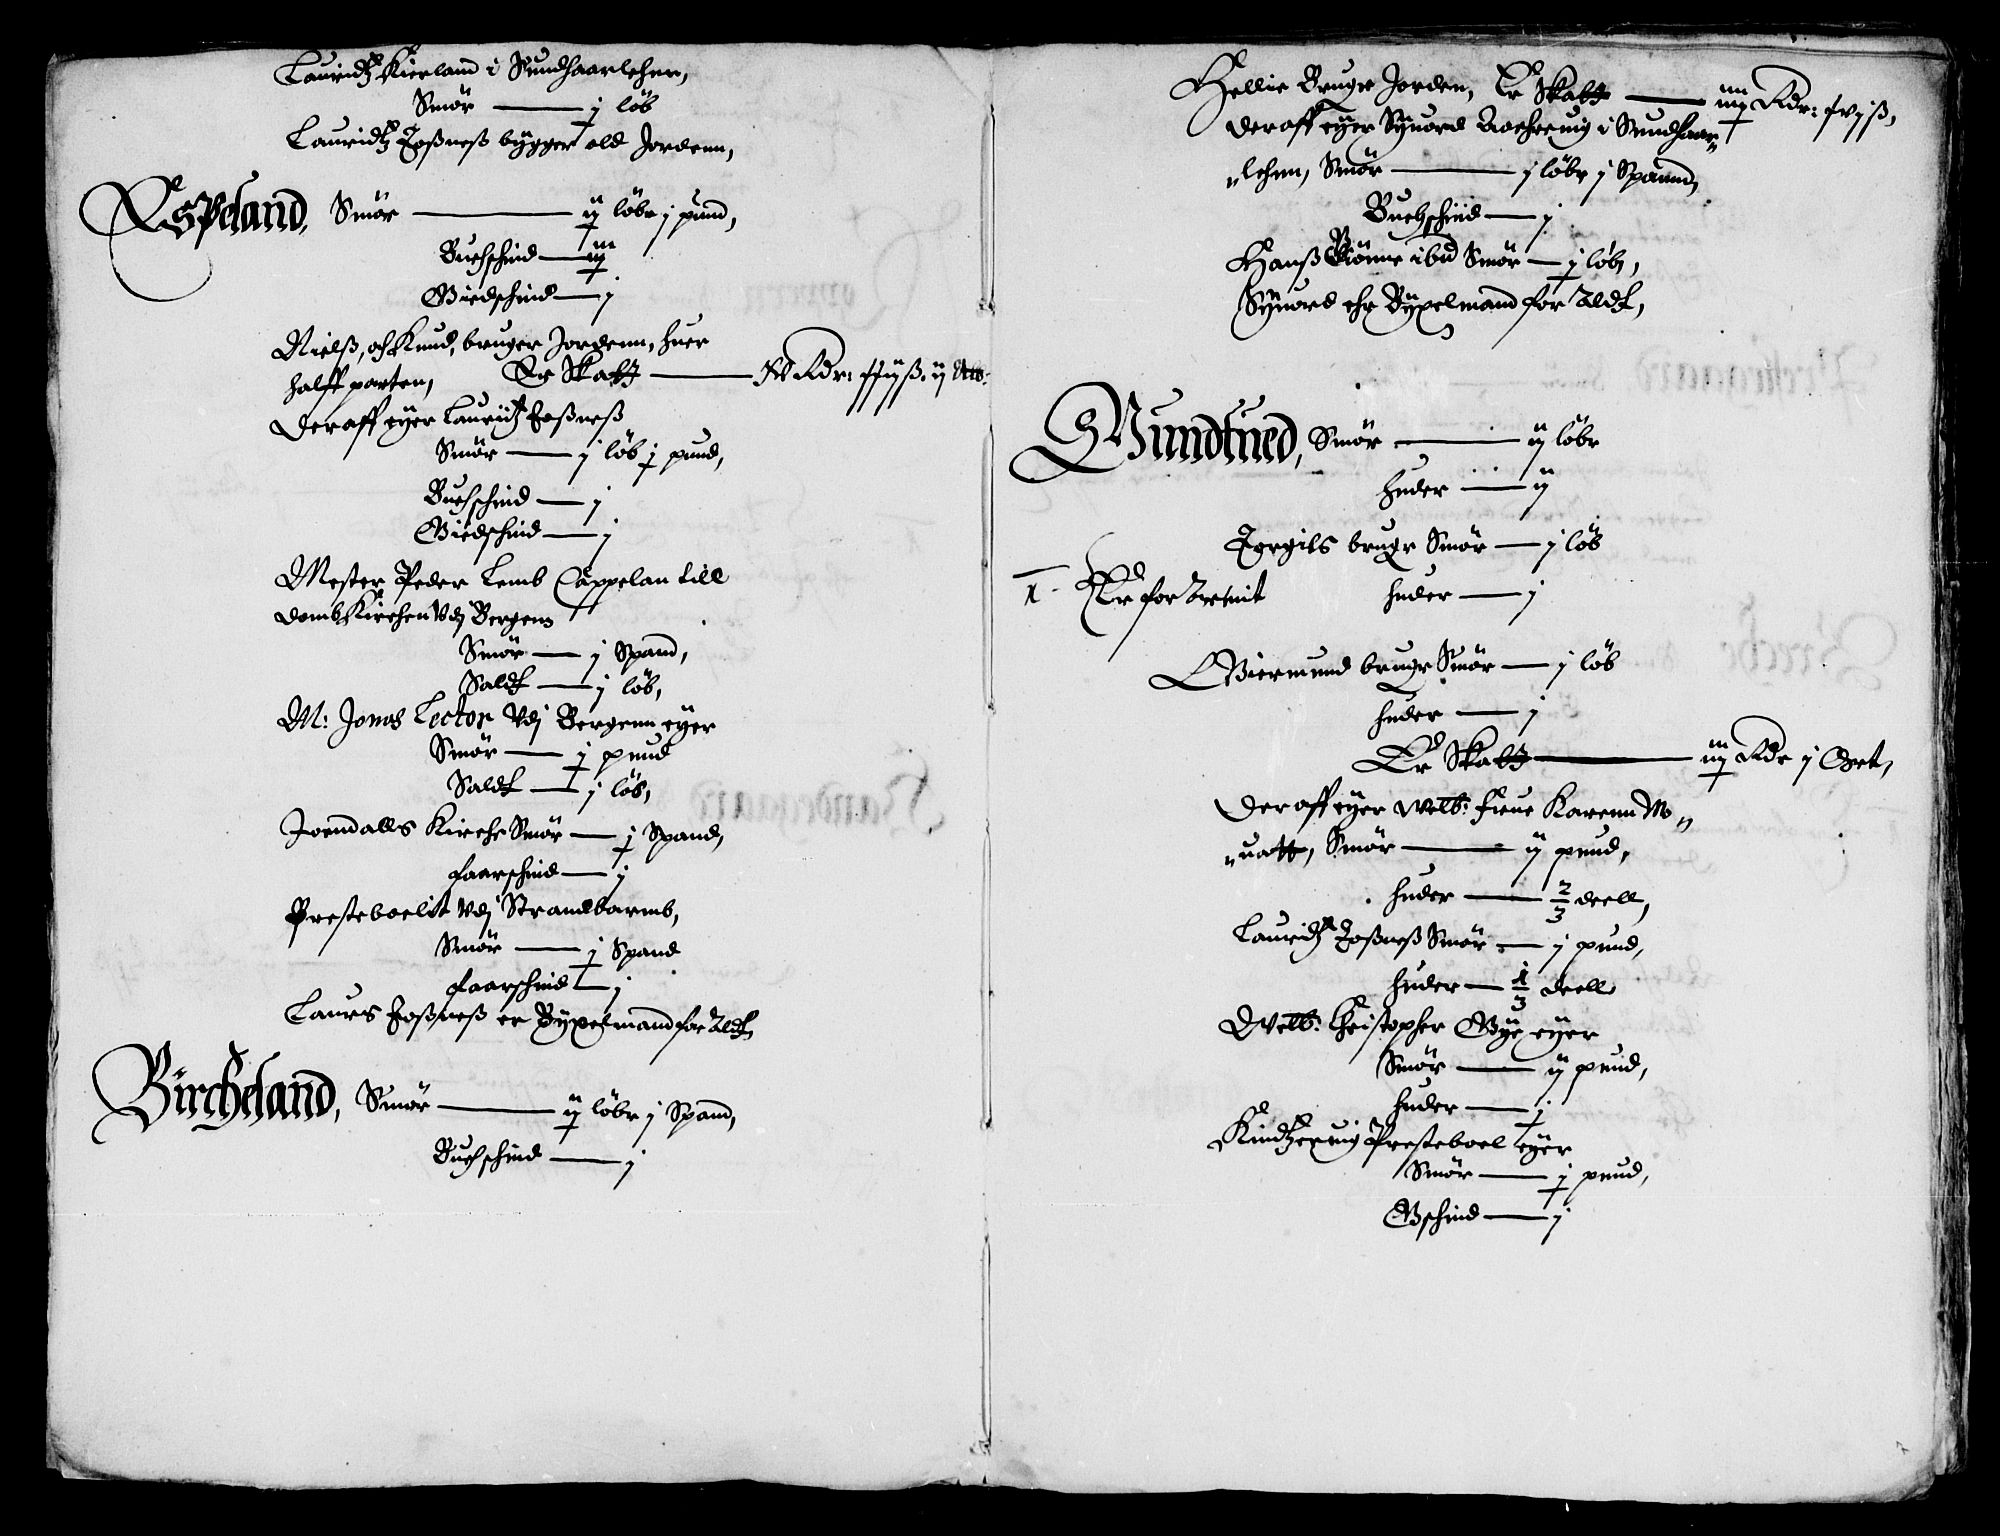 Lauridtz Kierland i Sundhaarlehnn,
Smör — j löb
Lauridtz Joßneß bygger old Jordenn,
Espeland, Smör — ij löbr j pund,
Buchschind — iij
Giedschind — j
Nielß, och Knud, bruger Jordenn, huer
halff parten, Er Skatt — Rdr:
Deraff eyer Lauridtz Joßneß
Smör — j löb j pund,
Buchschind — j
Giedschind — j
Mester Peder Lemb Cappelan till
domb Kirchen Vdj Bergenn
Smör — j Spand,
Saldt — j löb,
M: Jonas Lector Vdj Bergenn eyer
Smör — j pund
Saldt — j löb,
Joendalls Kirche Smör — j Spand,
faarschind — j
Presteboelit Vdj Strandbarmb,
Smör — j Spand
faarschind — j
Laurs Joßneß er Byxelmand for Aldt,
Bircheland, Smör — ij löbr j Spand,
Buchschind — j
Hellie Bruger Jorden, Er Skatt — Rdr:
Deraff eyer Synord i Sundhaar„
„lehnn, Smör — j löbr j Spannd,
Buchschind — j
Hanß ibid Smör — j löb,
Synord ehr Byxelmand for Aldt,
Gundfued, Smör — ij löbr
huder — ij
Torgils brugr Smör — j löb
1. Er for Armit huder — j
Giermund brugr Smör — j löb
huder — j
Er Skatt — iij Rdr j Ort,
Deraff eyer Welb: Frue Karenn M„
„uatt, Smör — ij pund,
huder — 2/3 deell,
Lauridtz Joßneß Smör — j pund,
huder — 1/3 deell
Welb: Christopher Gye eyer
Smör — ij pund,
huder — j
Kindtzeruig Presteboel eyer
Smör — j pund,
Gschind — j